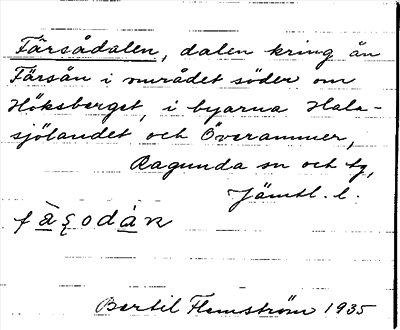 Färsådalen, dalen kring ån
Färsån i området söder om
Höksberget, i byarna Hala-
sjölandet och Överammer,
Ragunda sn och tg,
Jämtl. l.
Bertil Flemström 1935